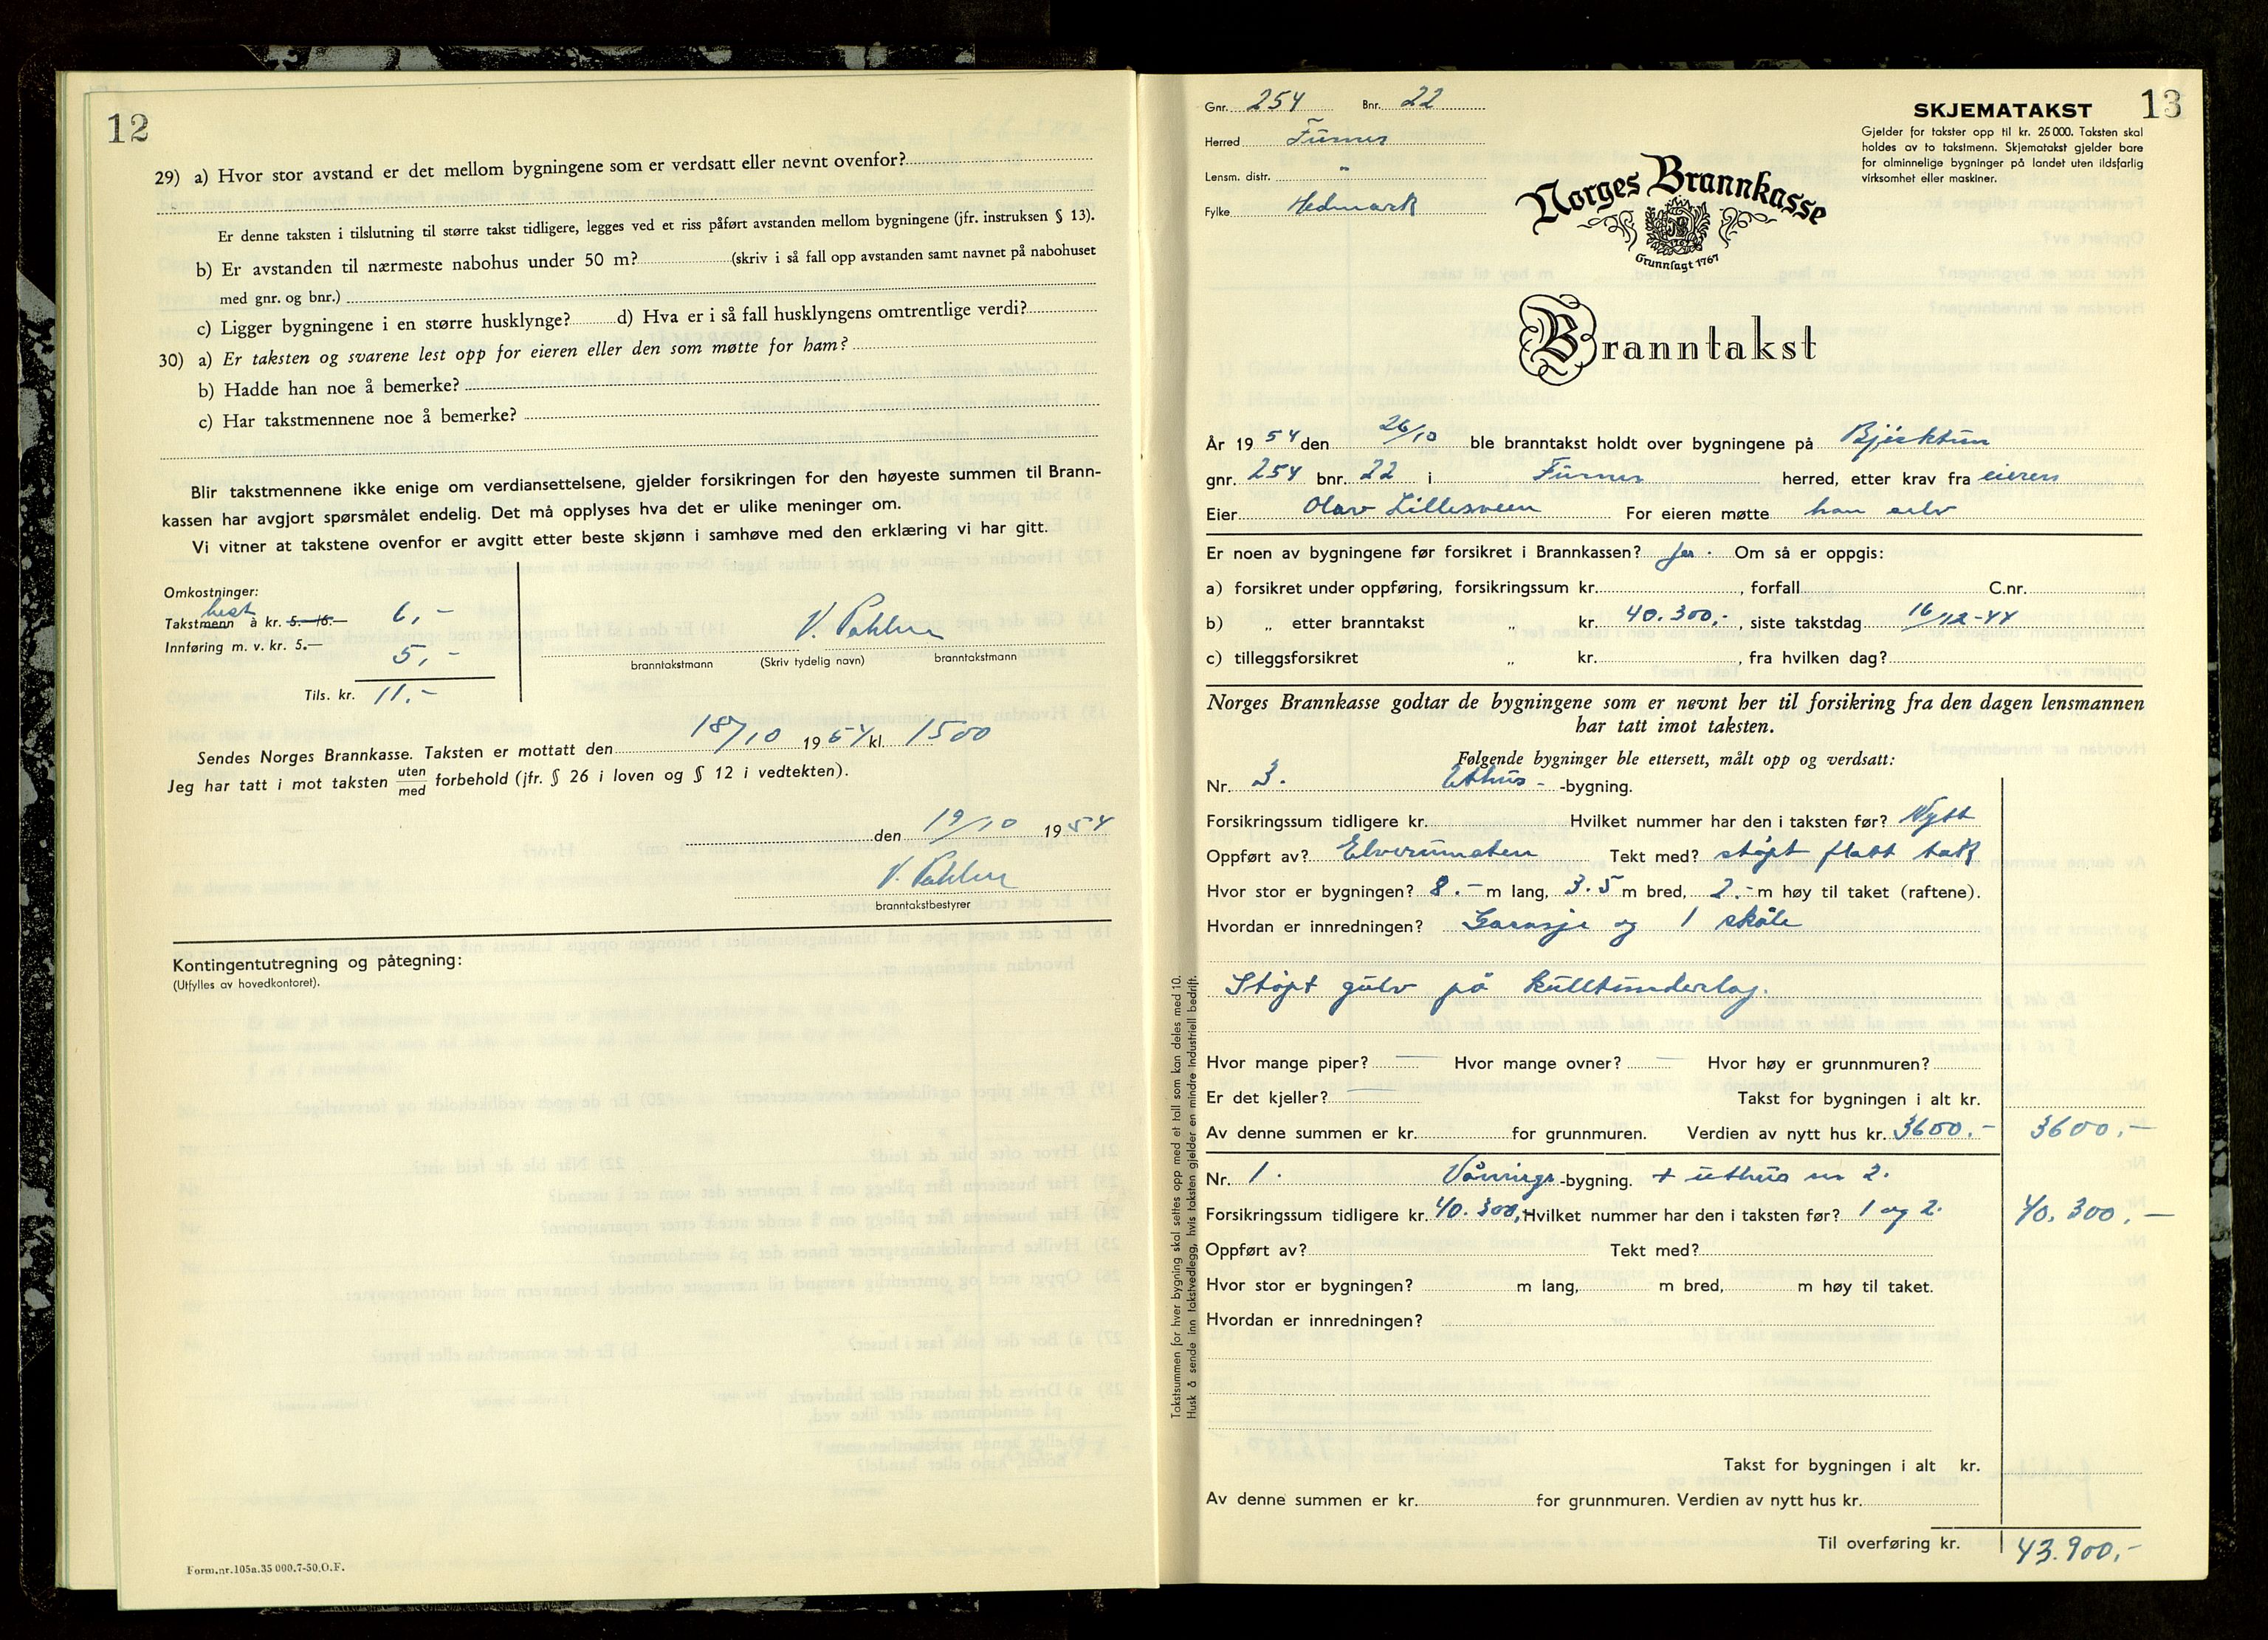 12
29) a) Hvor stor avstand er det mellom bygningene som er verdsatt eller nevnt ovenfor?
Er denne taksten i tilslutning til større takst tidligere, legges ved et riss påført avstanden mellom bygningene (jfr. instruksen § 13).
b) Er avstanden til nærmeste nabohus under 50 m? (skriv i så fall opp avstanden samt navnet på nabohuset
med gnr. og bnr.)
c) Ligger bygningene i en større husklynge? d) Hva er i så fall husklyngens omtrentlige verdi?
30) a) Er taksten og svarene lest opp for eieren eller den som møtte for ham?
b) Hadde han noe å bemerke?
c) Har takstmennene noe å bemerke?
Blir takstmennene ikke enige om verdiansettelsene, gjelder forsikringen for den høyeste summen til Brann-
kassen har avgjort spørsmålet endelig. Det må opplyses hva det er ulike meninger om.
Vi vitner at takstene ovenfor er avgitt etter beste skjønn i samhøve med den erklæring vi har gitt.
Omkostninger:
best
Takstmenn à kr. 5.— 6.— 6,-
Innføring m. v. kr. 5.— 5,-
Tils. kr. 11.-
V. Pahlen
branntakstmann (Skriv tydelig navn) branntakstmann
Sendes Norges Brannkasse. Taksten er mottatt den 18/10 1954 kl. 1500
Jeg har tatt i mot taksten uten/med forbehold (jfr. § 26 i loven og § 12 i vedtekten).
den 19/10 1954
V. Pahlen
branntakstbestyrer
Kontingentutregning og påtegning:
(Utfylles av hovedkontoret).
Form.nr.105a.35 000.7-50.O.F.
13
Gnr. 254 Bnr. 22
Herred Furnes
Lensm. distr. "
Fylke Hedmark
SKJEMATAKST
Gjelder for takster opp til kr. 25 000. Taksten skal
holdes av to takstmenn. Skjematakst gjelder bare
for alminnelige bygninger på landet uten ildsfarlig
virksomhet eller maskiner.
Norges Brannkasse
Grunnlagt 1767
Branntakst
År 1954 den 26/10 ble branntakst holdt over bygningene på Bjerktun
gnr. 254 bnr. 22 i Furnes herred, etter krav fra eieren
Eier Olav Lillesveen For eieren møtte han selv
Er noen av bygningene før forsikret i Brannkassen? Ja. Om så er oppgis:
a) forsikret under oppføring, forsikringssum kr. , forfall C.nr.
b) „ etter branntakst „ kr. 40.300,- , siste takstdag 16/12-44
c) tilleggsforsikret „ kr. , fra hvilken dag?
Norges Brannkasse godtar de bygningene som er nevnt her til forsikring fra den dagen lensmannen
har tatt imot taksten.
Følgende bygninger ble ettersett, målt opp og verdsatt:
Nr. 3. Uthus- -bygning.
Forsikringssum tidligere kr. Hvilket nummer har den i taksten før? Nytt
Oppført av? Elverumsten Tekt med? støpt flatt tak
Hvor stor er bygningen? 8.- m lang, 3.5 m bred, 2.- m høy til taket (raftene).
Hvordan er innredningen? Garasje og 1 skåle
Støpt gulv på kultunderlag.
Hvor mange piper? — Hvor mange ovner? — Hvor høy er grunnmuren?
Er det kjeller? — Takst for bygningen i alt kr.
Av denne summen er kr. for grunnmuren. Verdien av nytt hus kr. 3600.- 3600,-
Nr. 1. Vånings-bygning. + uthus nr 2.
Forsikringssum tidligere kr. 40.300,- Hvilket nummer har den i taksten før? 1 og 2. 40.300,-
Oppført av? Tekt med?
Hvor stor er bygningen? m lang, m bred, m høy til taket.
Hvordan er innredningen?
Takst for bygningen i alt kr.
Av denne summen er kr. for grunnmuren. Verdien av nytt hus kr.
Til overføring kr. 43.900,-
Takstsummen for hver bygning skal settes opp med et tall som kan deles med 10.
Husk å sende inn takstvedlegg, hvis taksten gjelder en mindre industriell bedrift.